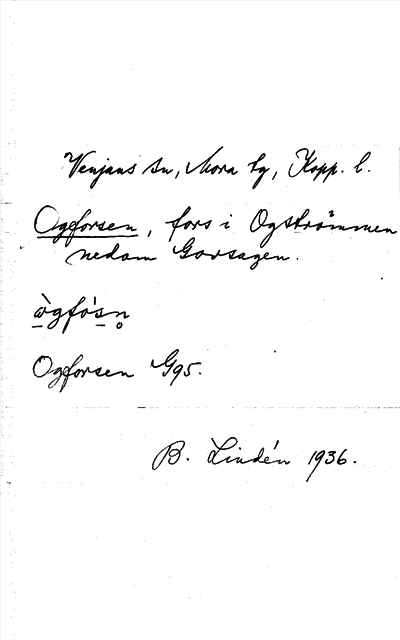 Venjans sn, Mora tg, Kopp. l.
Ogforsen, fors i Ogströmmen
nedom Gorsagen.
ògfós̠n̥
Ogforsen G95.
B. Lindén 1936.